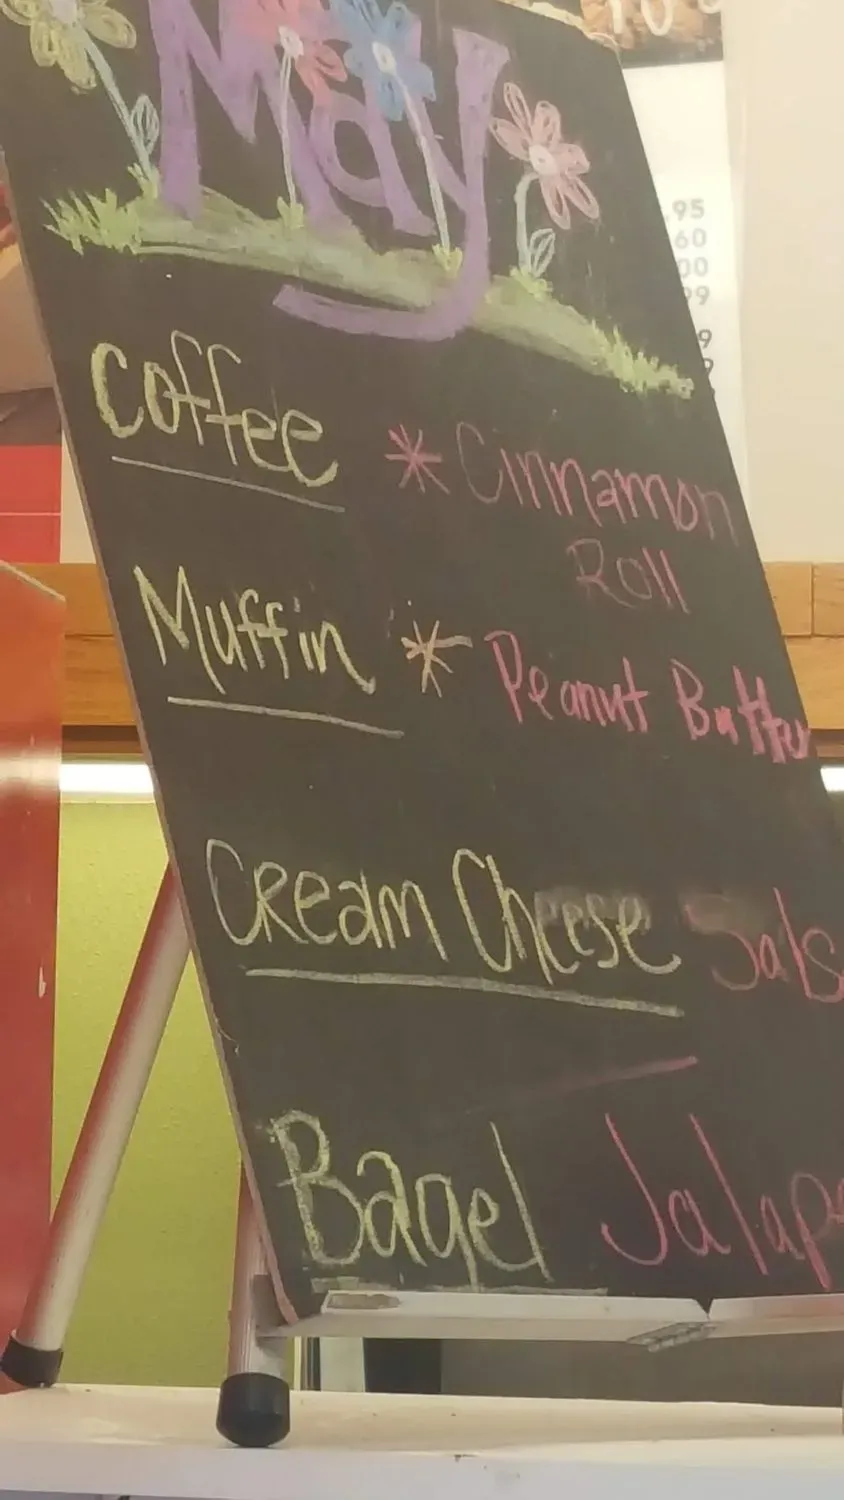 May
Coffee * Cinnamon
Roll
Muffin * Peanut Butter
Cream Cheese Sals
Bagel Jalap
.95
60
00
99
9